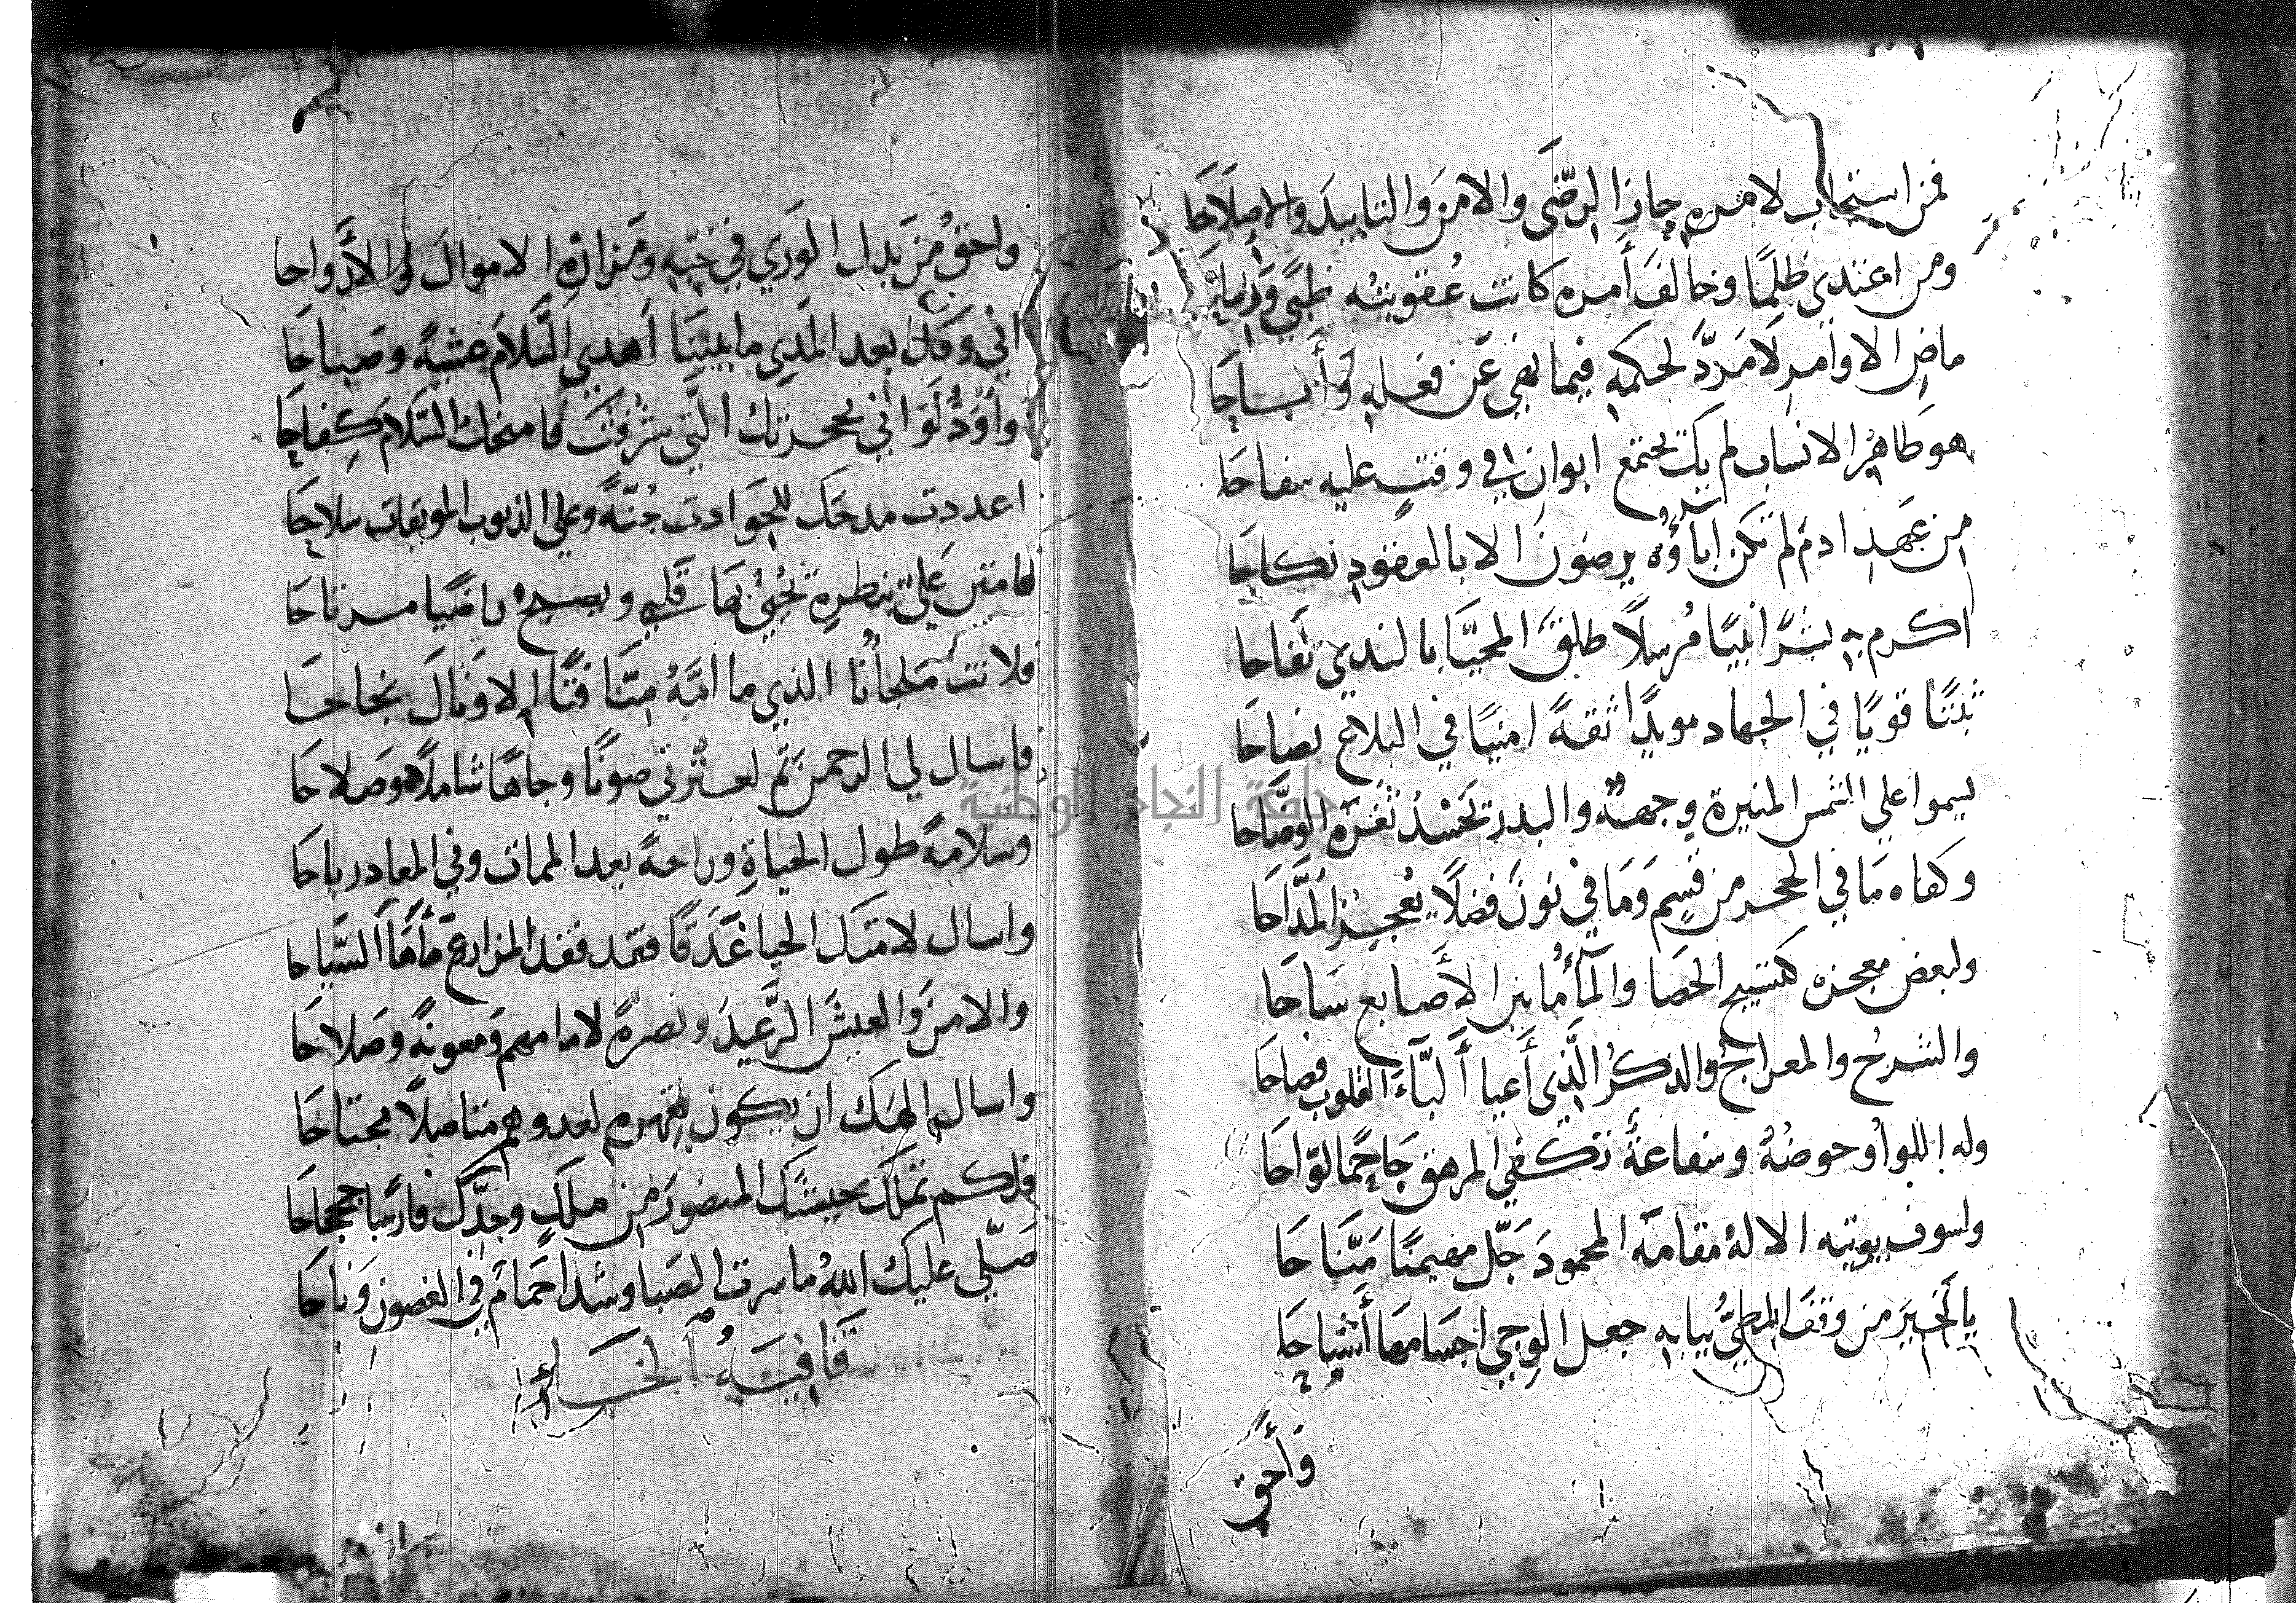 فمن استجاب لامره جاز الرضى والامن والتاييد والاصلاحا
ومن اعتدي ظلمًا وخالف أمره كانت عقوبته ظبي
ماض الاوامر لا مردّ لحكمه فيما نهي عن فعله وأباحا
هو طاهر الانساب لم يك تجتمع ابوان في وقت عليه سفاحا
من عهد ادم لم تكن اباؤه يرضون الا بالعقود نكاحا
اكرم به بشرًا نبيًا مرسلًا طلق المحيّا بالندي نفاحا
ثبتًا قويًا في الجهاد مويدًا ثقةً امنيًا في البلاغ نصاحا
يسموا علي الشمس المنيرة وجهه والبدر تحسد ثغره الوضّاحا
وكفاه ما في الحجر من قسم وما في نون فضلًا يعجز المدّاحا
ولبعض معجزه كتسبيح الحصا والمآء من بين الاصابع ساحا
والشرح والمعراج والذكر الذي أعيا ألبّاء القلوب فصاحا
وله اللوا وحوضه وشفاعة تكفي المرهق جاحمًا لوّاحا
ولسوف يوتيه الاله مقامه المحمود جلّ مهيمنًا منّاحا
يا خير من وقف المطيّ ببابه جعل الوجي اجسامها أشباحا
وأحق
واحق من بذل الوري في حبّه ومزاره الاموال والأرواحا
اني وقل بعد المدي ما بيننا اهدي السّلام عشيةً وصباحا
وأودّ لو اني بحجرتك الّتي شرفت فامنحك السّلام كفاحا
اعددت مدحك للحوادث جنّةً وعلي الذنوب الموبقات سلاحا
فامنن عليّ بنظرة تحيي بها قلبي ويصبح راضيًا مرتاحا
فلانت ملجأنا الذي ما امّه منّا فتًا الا ونال نجاحا
فاسال لي الرحمن ثم لعترتي صونًا وجاهًا شاملًا وصلاحا
وسلامةً طول الحياة وراحةً بعد الممات وفي المعاد رباحا
واسال لامتك الحيا غدقًا فقد فقد المزارع مآءها السّياحا
والامن والعيش الرّغيد ونصرةً لامامهم ومعونةً وصلاحا
واسال الهك ان يكون بقهره لعدوهم متاصلًا مجتاحا
فلكم تملك جيشك المنصور من ملك وجدّل فارسًا جحجاحا
صلّي عليك الله ما سرت الصبا وشدا حمام في الغصون وناحا
قافية الخاء
جامعة النجاح الوطنية